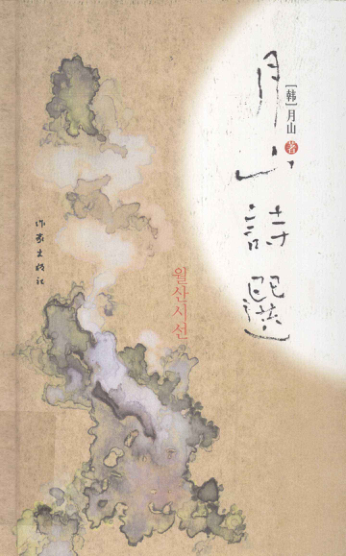 月山詩選
[韩]月山 著
월산시선
作家出版社